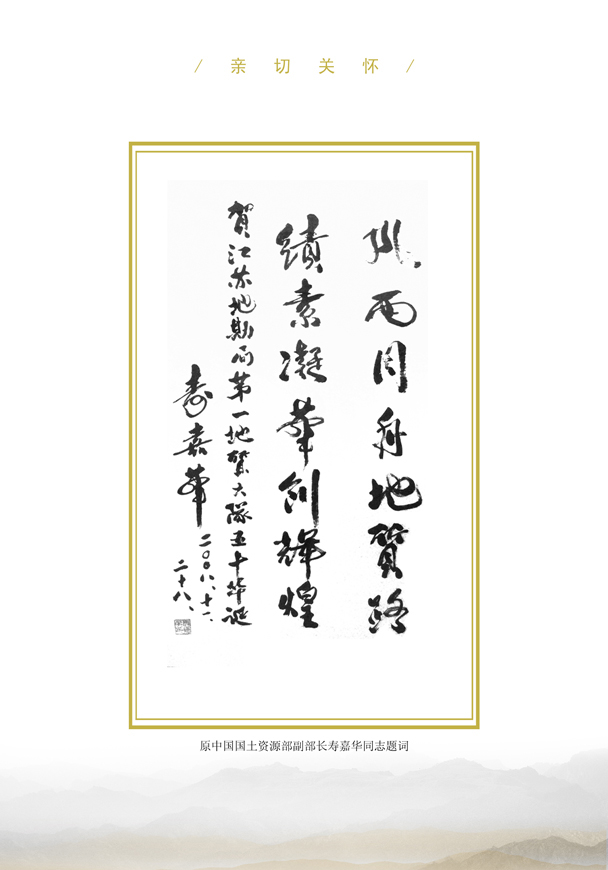 / 亲切关怀 /
风雨同舟地質路
績素凝華創輝煌
賀江苏地勘局第一地質大隊五十华诞
寿嘉華
二〇〇八、十一、
二十八、
原中国国土资源部副部长寿嘉华同志题词